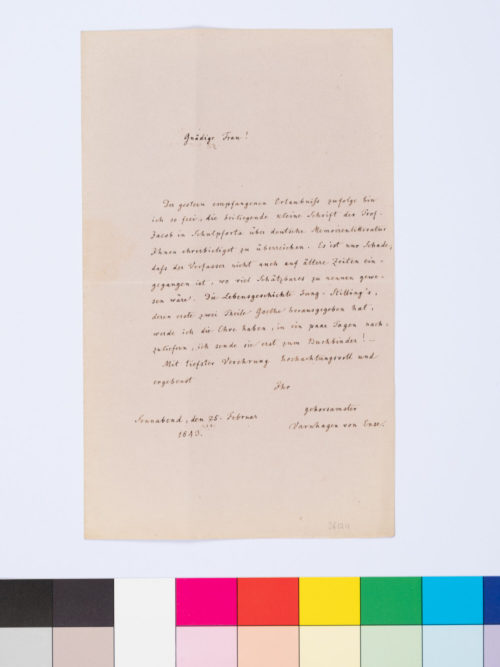 Gnädige Frau!
Der gestern empfangenen Erlaubniß zufolge bin
ich so frei, die beiliegende kleine Schrift des Prof.
Jacob in Schulpforta über deutsche Memoirenlitteratur
Ihnen ehrerbietigst zu überreichen. Es ist nur Schade,
daß der Verfasser nicht auch auf ältere Zeiten ein-
gegangen ist, wo viel Schätzbares zu nennen gewe-
sen wäre. Die Lebensgeschichte Jung-Stilling's,
deren erste zwei Theile Goethe herausgegeben hat,
werde ich die Ehre haben, in ein paar Tagen nach-
zuliefern, ich sende sie erst zum Buchbinder! –
Mit tiefster Verehrung hochachtungsvoll und
ergebenst
Ihr
gehorsamster
Varnhagen von Ense.
Sonnabend, den 25. Februar
1843.